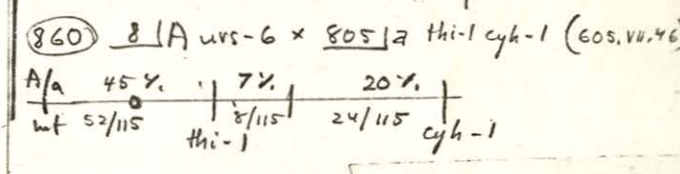 860 8 A uvs-6 × 805 a thi-1 cyh-1 (605.VII.46
A/a 45%. 7%. 20%.
mt 52/115 thi-1 8/115 24/115 cyh-1